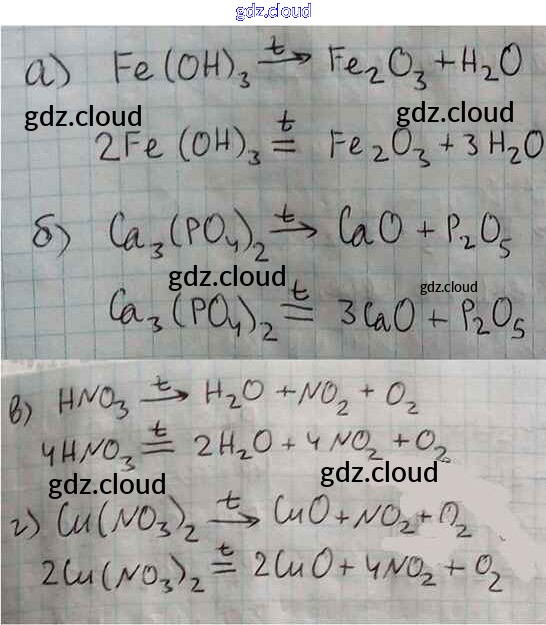 gdz.cloud
а) Fe(OH)₃ →ᵗ Fe₂O₃ + H₂O
gdz.cloud gdz.cloud
2Fe(OH)₃ =ᵗ Fe₂O₃ + 3H₂O
б) Ca₃(PO₄)₂ →ᵗ CaO + P₂O₅
gdz.cloud gdz.cloud
Ca₃(PO₄)₂ =ᵗ 3CaO + P₂O₅
в) HNO₃ →ᵗ H₂O + NO₂ + O₂
4HNO₃ =ᵗ 2H₂O + 4NO₂ + O₂
gdz.cloud gdz.cloud
г) Cu(NO₃)₂ →ᵗ CuO + NO₂ + O₂
2Cu(NO₃)₂ =ᵗ 2CuO + 4NO₂ + O₂